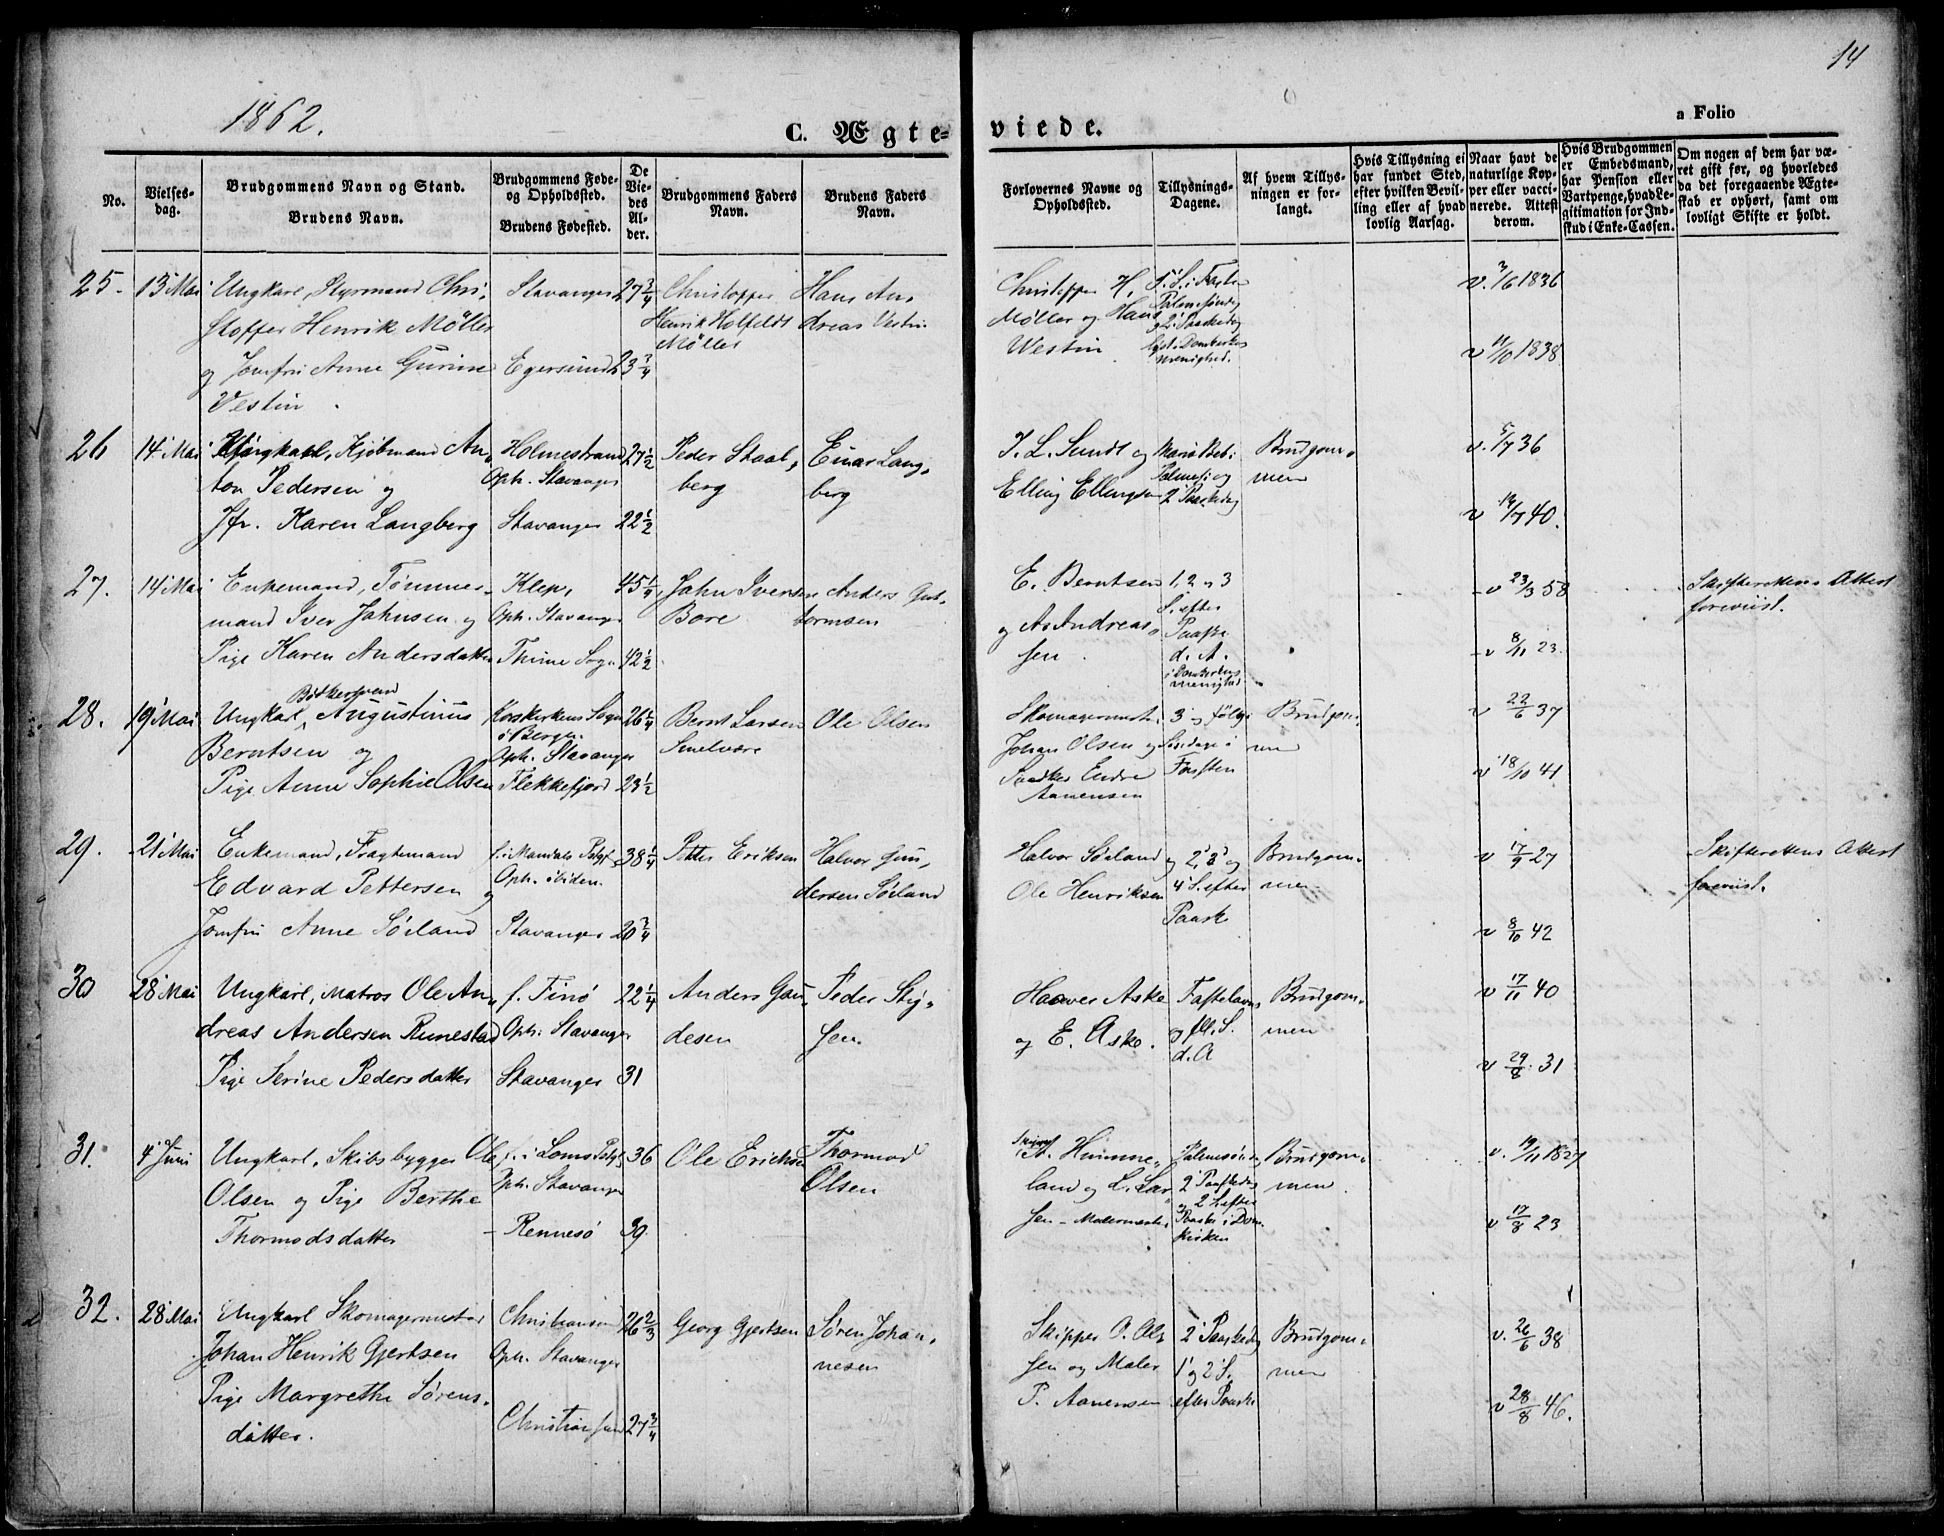 14
1862.
C. Ægte-
viede.
a Folio
No.
Vielses-
dag.
Brudgommens Navn og Stand.
Brudens Navn.
Brudgommens Føde-
og Opholdssted.
Brudens Fødested.
De
Vie-
des
Al-
der.
Brudgommens Faders
Navn.
Brudens Faders
Navn.
Forlovernes Navne og
Opholdssted.
Tillysnings-
Dagene.
Af hvem Tillys-
ningen er for-
langt.
Hvis Tillysning ei
har fundet Sted,
efter hvilken Bevil-
ling eller af hvad
lovlig Aarsag.
Naar havt de
naturlige Kop-
per eller vacci-
nerede. Attest
derom.
Hvis Brudgommen
er Embedsmand,
har Pension eller
Vartpenge, hvad Le-
gitimation for Ind-
skud i Enke-Cassen.
Om nogen af dem har væ-
ret gift før, og hvorledes
da det foregaaende Ægte-
skab er ophørt, samt om
lovligt Skifte er holdt.
25. 13 Mai
Ungkarl, Styrmand Chri-
stoffer Henrik Møller
og Jomfru Anne Gurine
Vestin.
Stavanger
Egersund
27 3/4
23 3/4
Christopher
Henrik Holfeldt
Møller
Hans An-
dreas Vestin
Christopher H.
Møller og Hans
Westin
5 S. i Faste
Palmesøndag
og 2 Paaskedag
v. 3/6 1836
v 11/10 1838
26 14 Mai
Ungkarl, Kjøbmand An-
ton Pedersen og
Jfr. Karen Langberg
Holmestrand
Oph. Stavanger
Stavanger
27 1/2
22 1/2
Peder Staal-
berg
Einar Lang-
berg
J. L. Sundt og
Elling Ellingsen
Mariæ Beb:
Palmes: og
2 Paaskedag
Brudgom-
men
v. 5/7 36
v 14/7 40.
27. 14 Mai
Enkemand, Tømmer-
mand Iver Jahnsen og
Pige Karen Andersdatter
Klep,
Oph. Stavanger
Thime Sogn
45 1/4
42 1/2
John Iversen
Bore
Anders Gut-
tormsen
E. Berntsen
og As Andreas-
sen
1, 2 og 3
S. efter
Paaske
d. A.
i Domkirkens
menighed
v 23/3 58
v 8/11 23.
Skifterettens Attest
foreviist.
28. 19 Mai
Bødkersvend
Ungkarl, Augustinus
Berntsen og
Pige Anne Sophie Olsen
Korskirkens Sogn
i Bergen
Oph. Stavanger
Flekkefjord
26 1/4
23 1/2
Bernt Larsen
Smelvære
Ole Olsen
Skomagermest.
Johan Olsen og
Snedker Endre
Aanensen
3 og følg:
Søndage i
Fasten
Brudgom-
men
v 22/6 37
v 18/10 41
29. 21 Mai
Enkemand, Fragtemand
Edvard Pettersen og
Jomfru Anne Søiland
f. i Mandals Pstgj.
Oph. ibiden.
Stavanger
38 1/4
20 3/4
Petter Eriksen
Halvor Gun-
dersen Søiland
Halvor Søiland og
Ole Henriksen
2, 3 og
4 S. efter
Paaske
Brudgom-
men
v 17/9 27
v 8/10 42
Skifterettens Attest
foreviist.
30 28 Mai
Ungkarl, Matros Ole An-
dreas Andersen Runestad
Pige Serine Pedersdatter
f. Finø
Oph. Stavanger
Stavanger
22 1/4
31
Anders Gau-
desen
Peder Stig-
sen.
Haaver Aske
og E. Aske.
Fastelavns
og fl. S.
d. A
Brudgom-
men
v 17/11 40
v 29/8 31
31. 4 Juni
Ungkarl, Skibsbygger Ole
Olsen og Pige Berthe
Thormodsdatter
f. i Loms Pstgj.
Oph. Stavanger
Rennesø
36
39.
Ole Erichsen
Thormod
Olsen
A. Humme-
land og L. Lar-
sen - Malermester
Palmesøndag
2 Paaskedag
og 2 S. efter
Paaske i Dom-
kirken
Brudgom-
men.
v. 19/11 1827
v 17/8 23
32. 28 Mai
Ungkarl Skomagermester
Johan Henrik Gjertsen
Pige Margrethe Sørens-
datter.
Christiansund
Oph. Stavanger
Christiansund
26 2/3
27 3/4
Georg Gjertsen
Søren Johan-
nesen
Skipper O. Ol-
sen og Maler
P. Aanensen
2 Paaskedag
1 og 2 S.
efter Paaske
Brudgom-
men
v. 26/6 38
v 28/8 46.